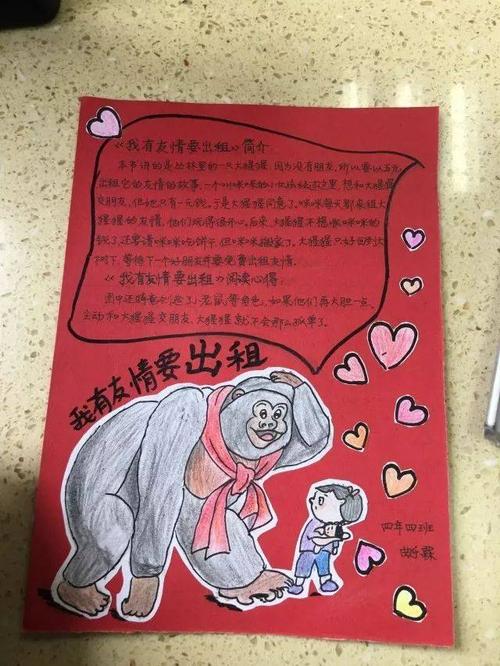 《我有友情要出租》简介
本书讲的是丛林里的一只大猩猩,因为没有朋友,所以要以五元
出租它的友情的故事,一个叫咪咪的小女孩经过这里,想和大猩猩
交朋友,但她只有一元钱。于是大猩猩同意了。咪咪每天都来租大
猩猩的友情,他们玩得很开心。后来,大猩猩不想收咪咪的
钱了,还要请咪咪吃饼干,但咪咪搬家了。大猩猩只好回到大
树下,等待下一个好朋友并要免费出租友情。
《我有友情要出租》阅读心得:
图中还隐着老鼠,等角色,如果他们再大胆一点,
主动和大猩猩交朋友,大猩猩就不会那么孤单了。
我有友情要出租
四年四班
霖